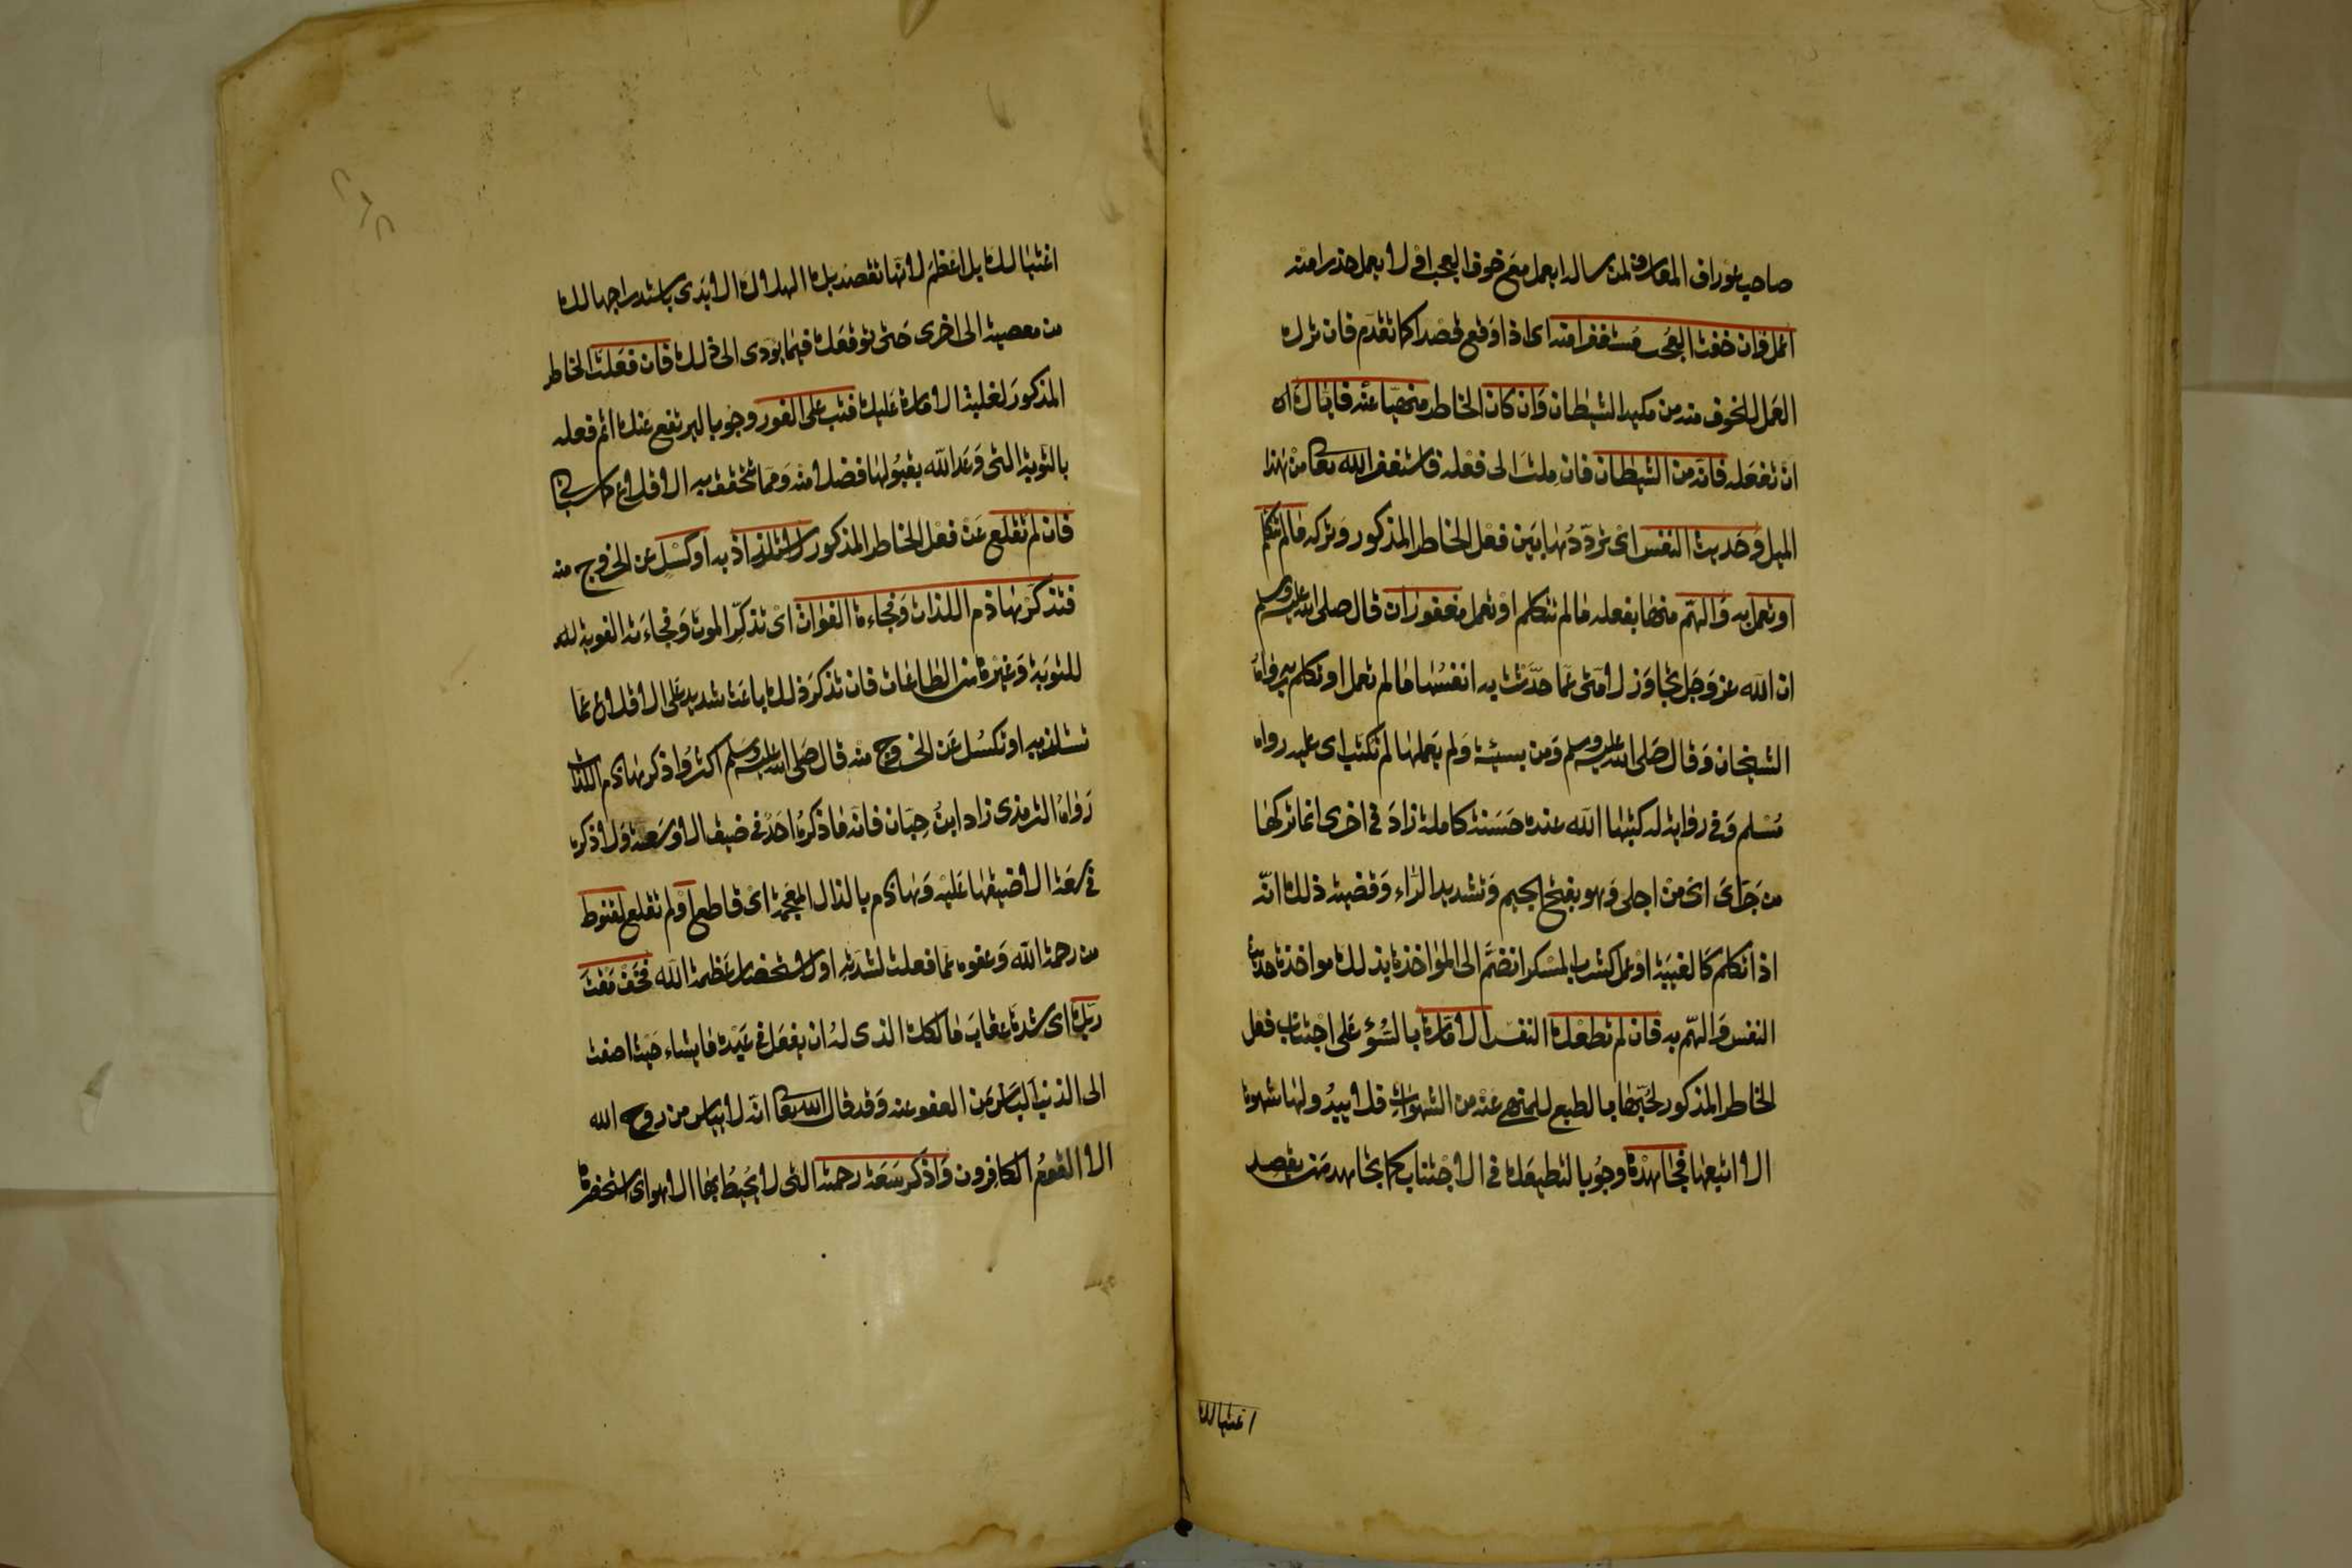 صاحب عوراف المعارف لمن ساله ايعمل مع خوف العجب اولا يعمل حذرا منه
اعمل وان خفت العجب مستغفرا منه اى اذا وقع قصدا كما تقدم فان ترك
العمل للخوف منه من مكيد الشيطان وان كان الخاطر منهيا عنه فاياك
ان تفعله فانه من الشيطان فان ملت الى فعله فاستغفر الله تعا من هذا
الميل وَحديث النفس اى تردّدُها بين فعل الخاطر المذكور وتركه مالم تتكلم
او تعمل به وَالهمّ منها بفعله مالم تتكلم او تعمل مغفوران قال صلى الله عليه وسلم
ان الله عز وَجل تجاوَز لامتى عمّا حدّثت به انفسُها مالم تعمل او تكلم به رواهُ
الشيخان وَقال صَلى الله عليه وسلم وَمن بسيئة وَلم يَعملها لم تكتب اى عليه رواه
مُسْلم وَفى رواية له كتبها الله عنده حَسَنة كاملة زادَ فى اخرى انما تركها
من جَرّاىَ اىَ منْ اجلى وَهو بفتح الجيم وَتشديد الرّاء وَقضية ذلك انّه
اذا تكلم كالغيبَة اوْ عمل كشرب المسكر انضمَّ الى المؤاخذة بذلك مواخذة حديث
النفس وَالهّم به فان لم تطعك النفس الامّارة بالسُوء عَلى اجتناب فعل
الخاطر المذكور لحُبّها بالطبع للمنهى عَنْه من الشهواتِ فلا يبدُو لها شهوة
الا اتبعتها فجَاهِدْها وجُوبا لتطيعَك فى الاجْتناب كما تجاهد مَن يقصد
اغتيالك
اغتيالك بل اعْظمَ لانّها تقصد بك الهلاك الابَدى باستدراجها لك
من معصية الى اخرى حَتى توقعَك فيما يؤدى الى ذلك فان فعَلتَ الخاطر
المذكورَ لغلبة الامارة عَليك فتب على الفور وجُوبا ليرتفع عَنك اثم فعله
بالتوبة التى وَعد الله بقبُولها فضلا منه وَممّا تتحقق به الاقلاع كما سياتى
فان لم تقلع عَنْ فعْل الخاطر المذكور لاستلذاذ به او كسَلٍ عن الخروج منه
فتذكّرْ هاذم اللذات وَفجاءة الفوات اىْ تذكّر الموتَ وَفجاءته الفوتة
للتوبَة وَغيْرها من الطاعَات فان تذكرَ ذلك باعَث شديد عَلى الاقلاع عَمّا
تستلذ به او تكسُل عَن الخروج منه قال صَلى الله عليه وسَلم اكثرُوا ذكر هاذم اللذات
رَواهُ الترمذى زاد ابنُ حِبّان فانّه ما ذكرهُ احَدٌ فى ضيق الا وسَّعه وَلا ذكره
فى سَعَة الا ضيقها عَليْه وَهاذم بالذال المعجمة اىْ قاطع اوْ لم تقلع لقنوط
من رحمة الله وَعفوه عَما فعلت لشدّتهِ او لاستحضار عَظمة الله فخَفْ مَقْتَ
ربّك اى شدة عقاب مَالكك الذى لهُ ان يفعَل فى عَبْده مَا يشاء حَيث اضفت
الى الذنب اليَأس مَن العفو عنه وَقد قال الله تعَا انّه لا ييأس من رَوح الله
الا القوم الكافِرون وَاذكر سَعَة رحمته التى لا يُحِيطُ بهَا الا هو اى استحضرها